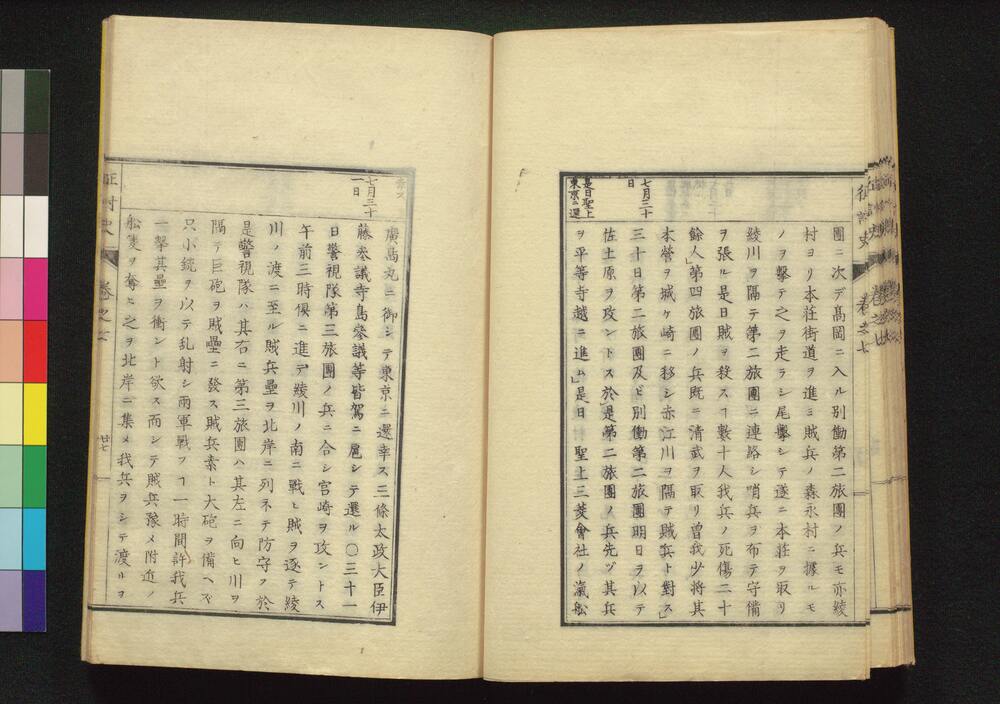 征討史
卷之七
團ニ次デ髙岡ニ入ル別働第二旅團ノ兵モ亦綾
村ヨリ本荘街道ヲ進ミ賊兵ノ森永村ニ據ルモ
ノヲ撃テ之ヲ走ラシ尾擊シテ遂ニ本荘ヲ取リ
綾川ヲ隔テ第二旅團ニ連絡シ哨兵ヲ布テ守備
七月三十
日
ヲ張ル是日賊ヲ殺スヿ數十人我兵ノ死傷二十
餘人」第四旅團ノ兵既ニ清武ヲ取リ曽我少將其
本營ヲ城ヶ崎ニ移シ赤江川ヲ隔テ賊兵ト對ス」
三十日第二旅團及ビ別働第二旅團明日ヲ以テ
佐土原ヲ攻ントス於是第二旅團ノ兵先ヅ其兵
是日聖上
東京ニ還
ヲ平等寺越ニ進ム」是日 聖上三菱會社ノ滊舩
幸ス
廣島丸ニ御シテ東京ニ還幸ス三條太政大臣伊
七月三十
一日
藤參議寺島參議等皆駕ニ扈シテ還ル〇三十一
日警視隊第三旅團ノ兵ニ合シ宮崎ヲ攻ントス
午前三時俱ニ進デ綾川ノ南ニ戰ヒ賊ヲ逐テ綾
川ノ渡ニ至ル賊兵壘ヲ北岸ニ列ネテ防守ス於
是警視隊ハ其右ニ第三旅團ハ其左ニ向ヒ川ヲ
隔テ巨砲ヲ賊壘ニ發ス賊兵素ト大砲ヲ備ヘズ
只小銃ヲ以テ乱射シ兩軍戰フヿ一時間許我兵
一擧其壘ヲ衝ント欲ス而シテ賊兵豫メ附近ノ
舩隻ヲ奪ヒ之ヲ北岸ニ集メ我兵ヲシテ渡ルヲ
征討史
卷之七
廿七